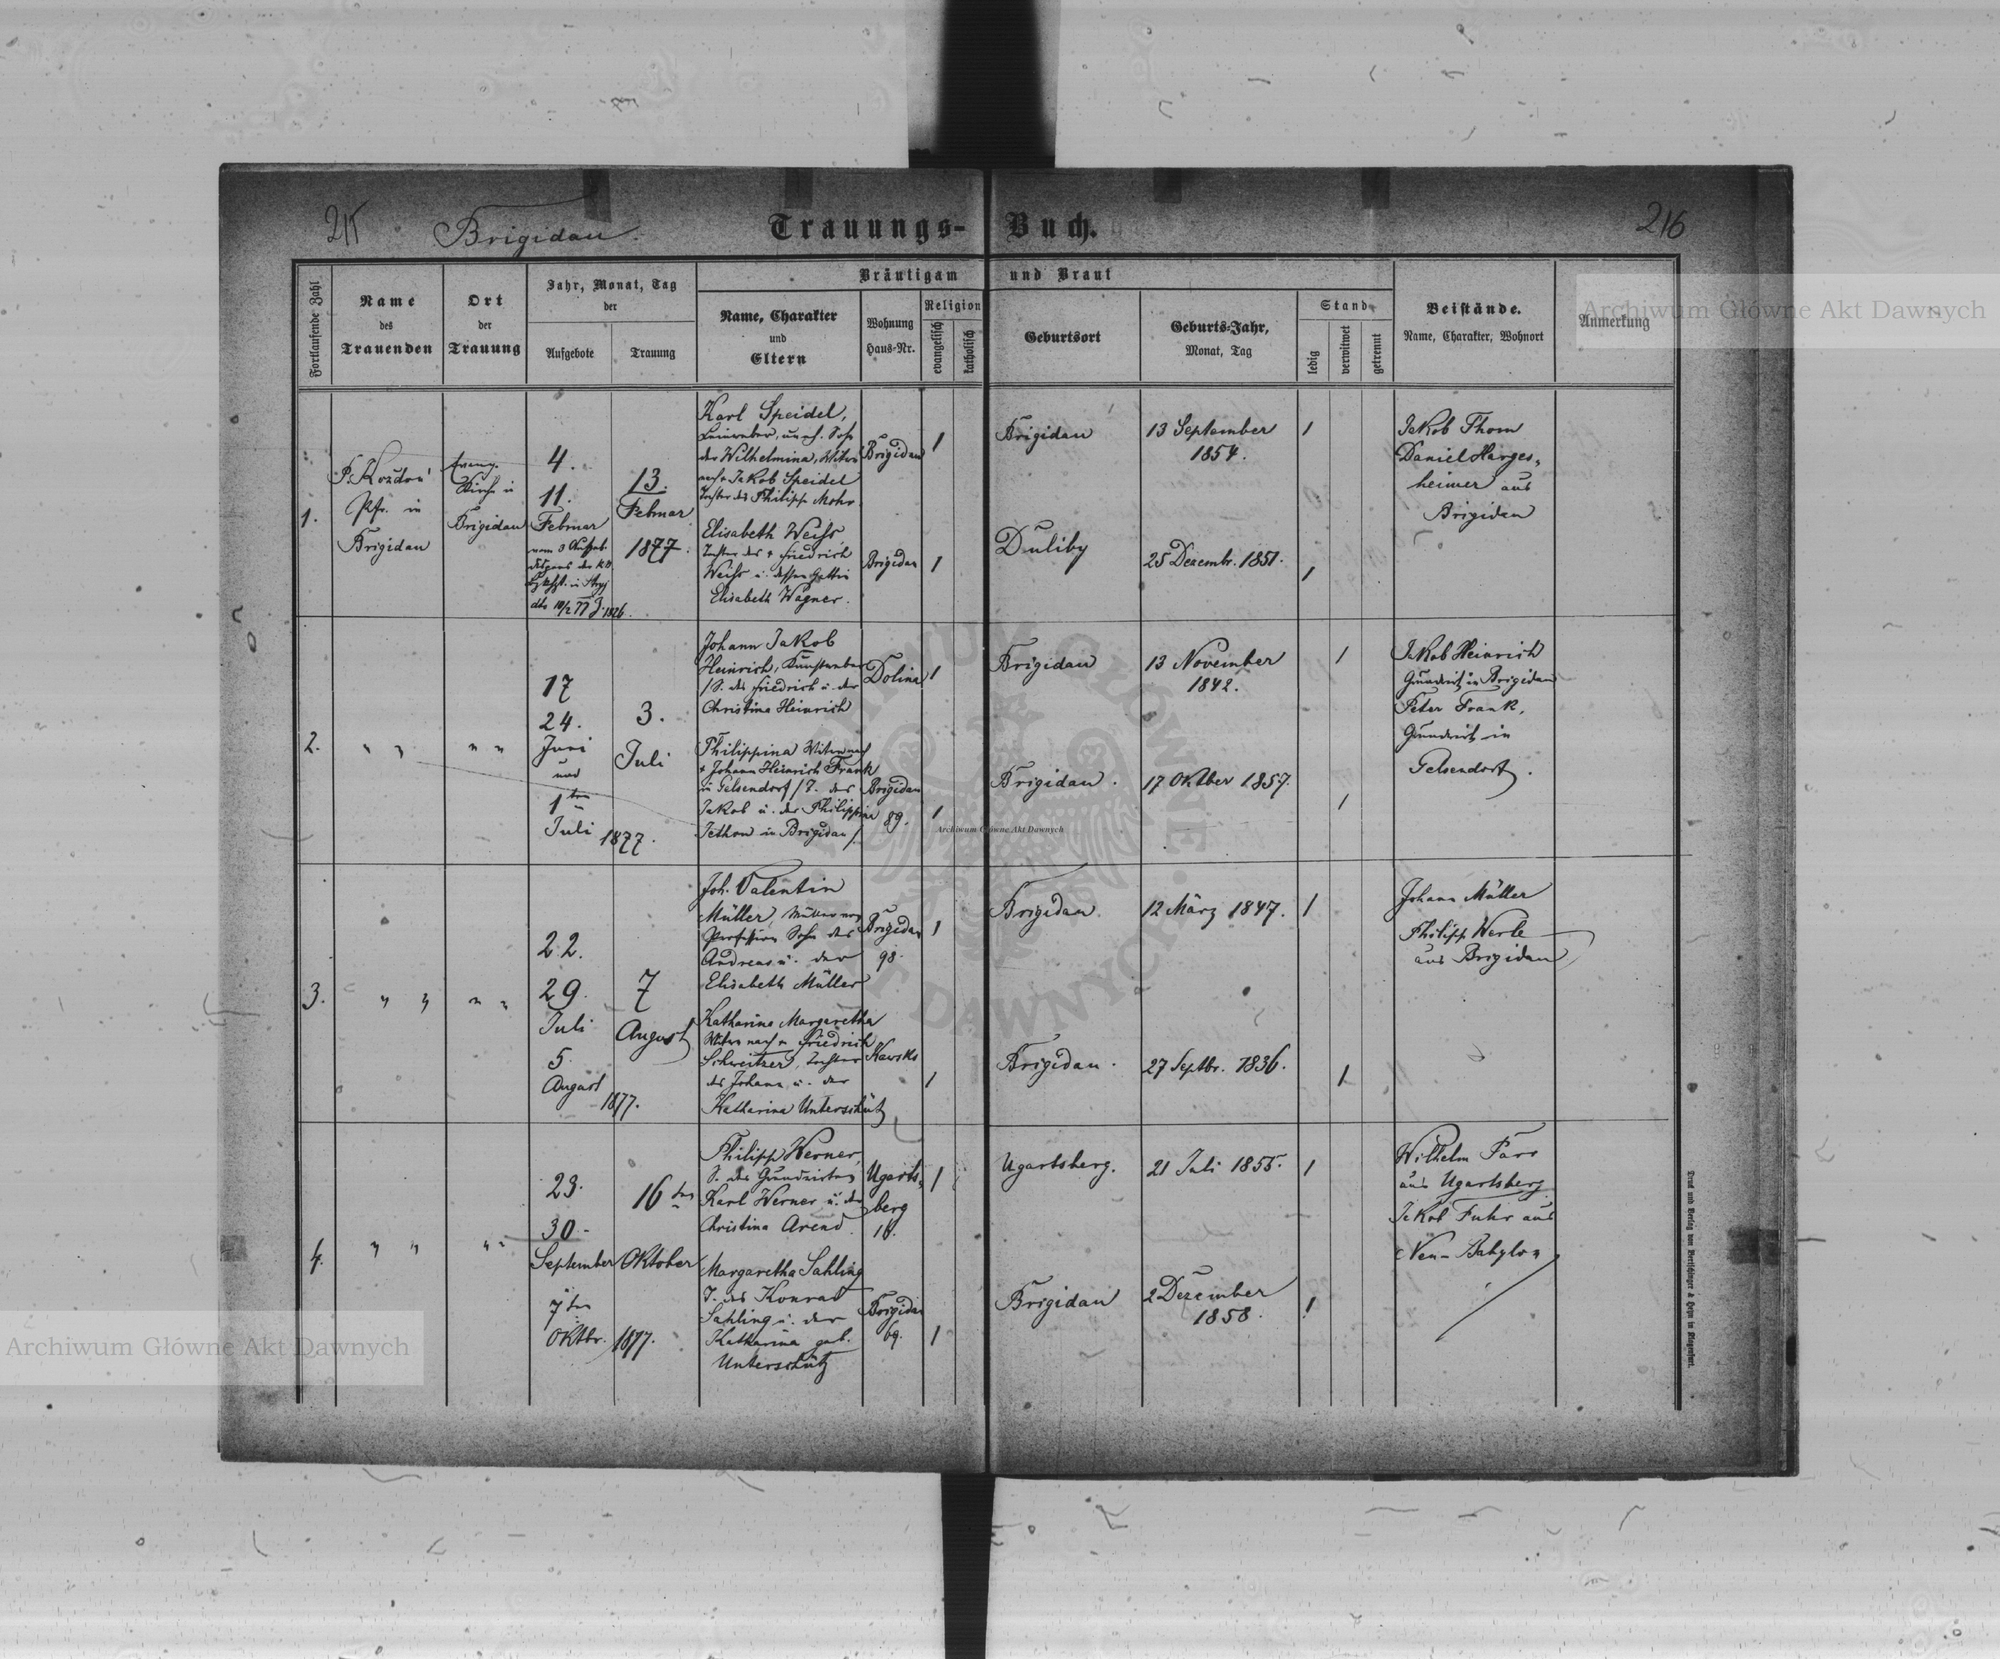 215
Brigidau.
Trauungs-Buch.
216
Fortlaufende Zahl
Name
des
Trauenden
Ort
der
Trauung
Jahr, Monat, Tag
der
Aufgebote
Trauung
Bräutigam und Braut
Name, Charakter
und
Eltern
Wohnung
Haus-Nr.
Religion
evangelisch
katholisch
Geburtsort
Geburts-Jahr,
Monat, Tag
Stand
ledig
verwitwet
getrennt
Beistände.
Name, Charakter, Wohnort
Anmerkung
1.
Pfr. in
Brigidau
Kirche in
Brigidau
4.
11.
Februar
13.
Februar
1877.
Karl Speidel,
der Wilhelmina, Witwe
nach + Jakob Speidel
Tochter des Philipp Mohr
Brigidau
1
Brigidau
13 September
1854.
1
Jakob Thom
Daniel Harges-
heimer aus
Brigidau
Elisabeth Weiss,
Tochter des + Friedrich
Weiss u. dessen Gattin
Elisabeth Wagner.
Brigidau
1
Duliby
25 Dezembr. 1851.
1
2.
" "
" "
17
24.
Juni
und
1ten
Juli
1877.
3.
Juli
Johann Jakob
Heinrich,
/S. des Friedrich u. der
Christina Heinrich
Dolina
1
Brigidau
13 November
1842.
1
Jakob Heinrich
Grundwirt in Brigidau
Peter Frank,
Grundwirt in
Gelsendorf.
Philippina Witwe nach
+ Johann Heinrich Frank
in Gelsendorf /T. des
Jakob u. der Philippina
in Brigidau/.
Brigidau
89.
1
Brigidau.
17 Oktber 1857.
1
3.
" "
" "
22.
29.
Juli
5.
August
1877.
7
August
Joh. Valentin
Müller,
Profession Sohn des
Andreas u. der
Elisabeth Müller
Brigidau
98.
1
Brigidau
12 März 1847.
1
Johann Müller
Philipp Werle
aus Brigidau
Katharina Margaretha
Witwe nach + Friedrich
Schweitzer, Tochter
des Johann u. der
Katharina Unterschütz
1
Brigidau.
27 Septbr. 1836.
1
4.
" "
" "
23.
30.
September
7ten
Oktbr. 1877.
16ten
Oktober
Philipp Werner,
S. des Grundwirten
Karl Werner u. der
Christina Arend.
Ugarts-
berg
1
Ugartsberg.
21 Juli 1855.
1
Wilhelm
aus Ugartsberg
Jakob Fuhr aus
Neu-Babylon
Margaretha Sahling
T. des Konrad
Sahling u. der
Katharina geb.
Unterschütz
Brigidau
69.
1
Brigidau
2 Dezember
1858.
1
Druck und Verlag von Bertschinger & Heyn in Klagenfurt.
Archiwum Główne Akt Dawnych
Archiwum Główne Akt Dawnych
Archiwum Główne Akt Dawnych